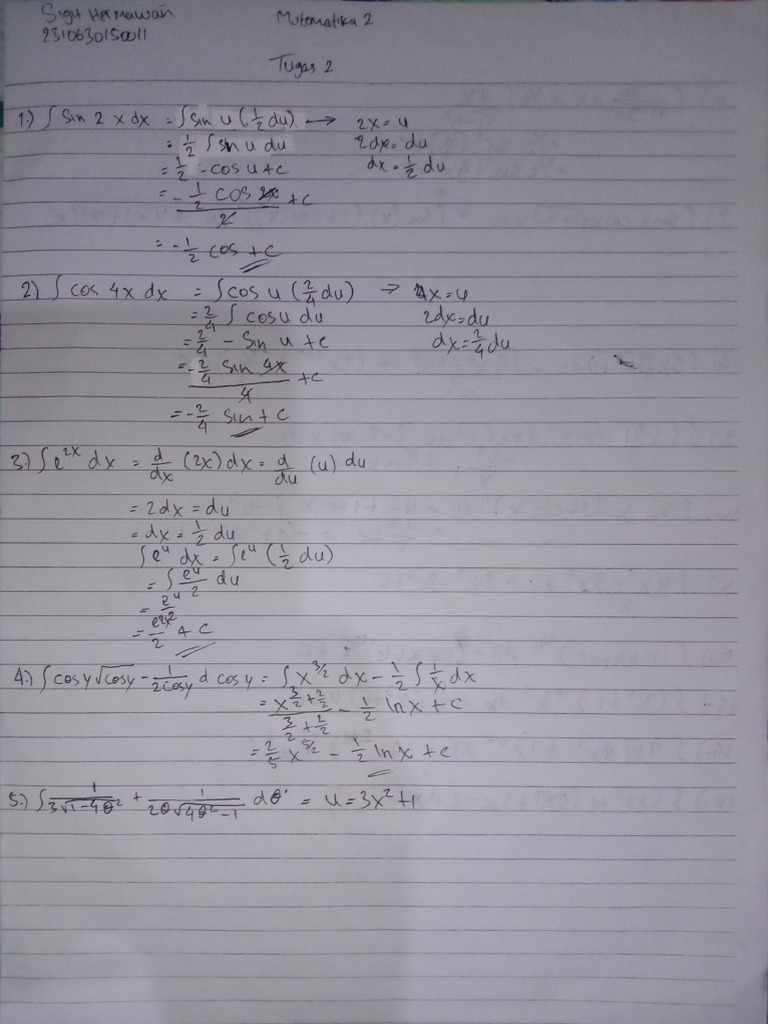 Sigit Hermawan
Matematika 2
2310630150011
Tugas 2
1.) ∫ Sin 2x dx = ∫ sin u (1/2 du) → 2x = u
= 1/2 ∫ sin u du 2dx = du
= 1/2 - cos u + c dx = 1/2 du
= - 1/2 cos 2x / 2 + c
= - 1/2 cos + c
2) ∫ cos 4x dx = ∫ cos u (2/4 du) → 4x = u
= 2/4 ∫ cos u du 2dx = du
= 2/4 - Sin u + c dx = 2/4 du
= - 2/4 sin 4x / 4 + c
= - 2/4 sin + c
3.) ∫ e^2x dx = d/dx (2x) dx = d/du (u) du
= 2dx = du
= dx = 1/2 du
∫ e^u dx = ∫ e^u (1/2 du)
= ∫ e^u/2 du
= e^u/2
= /2 + c
4.) ∫ cos y √cos y - 1/2cos y d cos y = ∫ x^3/2 dx - 1/2 ∫ 1/x dx
= x^(3/2 + 2/2) / (3/2 + 2/2) - 1/2 ln x + c
= 2/5 x^5/2 - 1/2 ln x + c
5.) ∫ 1/3√1-4θ² + 1/2θ√4θ²-1 dθ = u = 3x² + 1